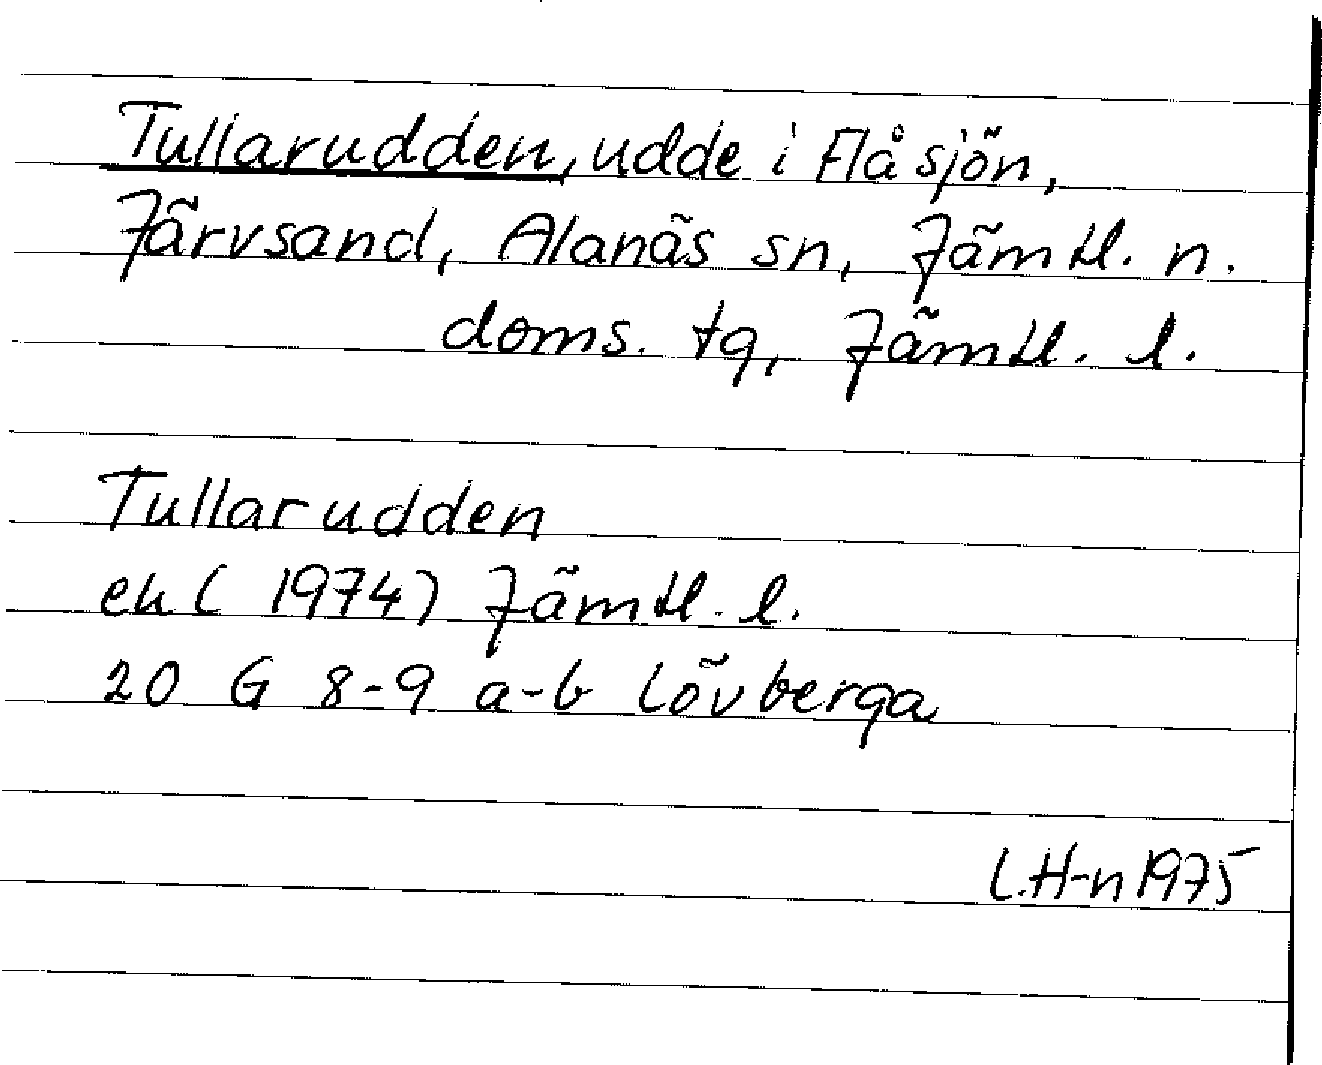 Tullarudden, udde i Flåsjön,
Järvsand, Alanäs sn, Jämtl. n.
doms. tg, Jämtl. l.
Tullarudden
ek (1974) Jämtl. l.
20 G 8-9 a-b Lövberga
L.H-n 1975